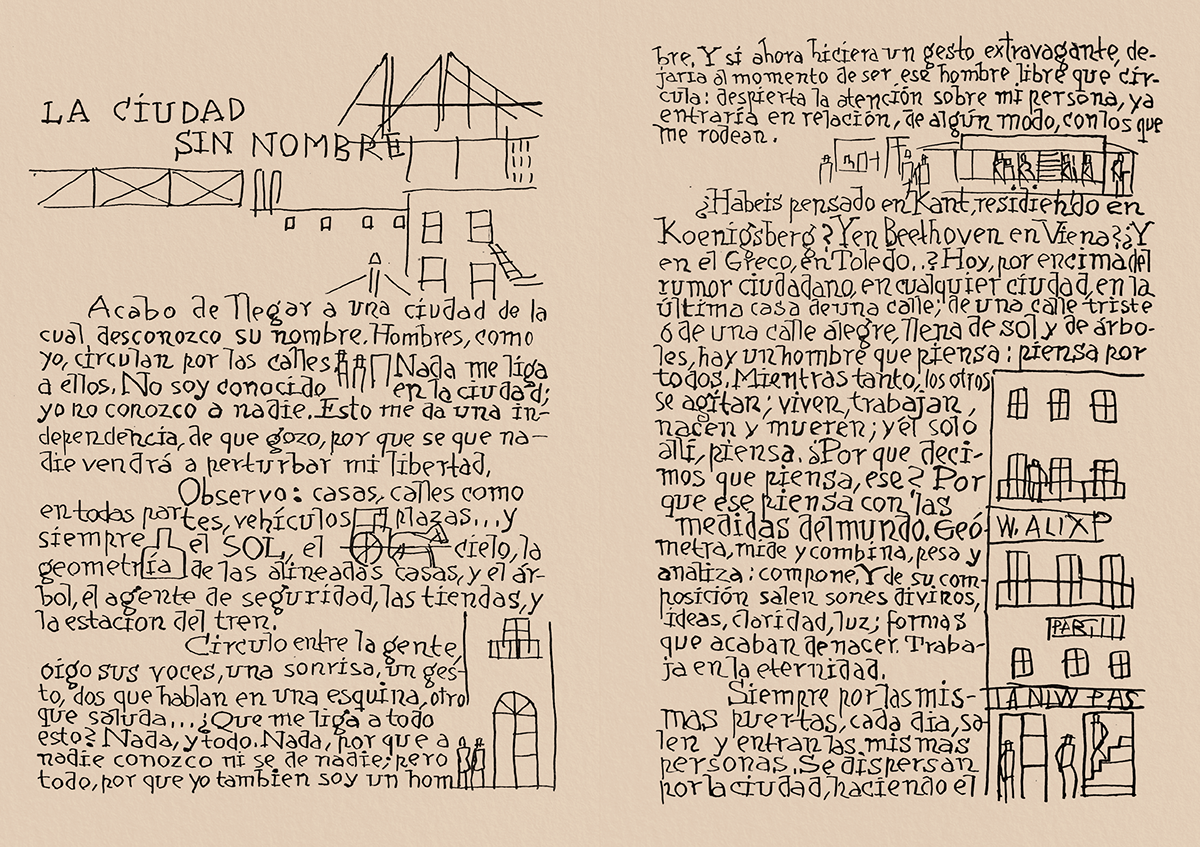 LA CIUDAD
SIN NOMBRE
Acabo de llegar a una ciudad de la
cual desconozco su nombre. Hombres, como
yo, circulan por las calles. Nada me liga
a ellos. No soy conocido en la ciudad;
yo no conozco a nadie. Esto me da una in-
dependencia, de que gozo, por que se que na-
die vendrá a perturbar mi libertad.
Observo: casas, calles como
en todas partes, vehículos, plazas... y
siempre el SOL, el cielo, la
geometría de las alineadas casas, y el ár-
bol, el agente de seguridad, las tiendas, y
la estación del tren.
Circulo entre la gente,
oigo sus voces, una sonrisa, un ges-
to, dos que hablan en una esquina, otro
que saluda... ¿Que me liga a todo
esto? Nada, y todo. Nada, por que a
nadie conozco ni se de nadie; pero
todo, por que yo tambien soy un hom
bre. Y si ahora hiciera un gesto extravagante, de-
jaria al momento de ser ese hombre libre que cir-
cula: despierta la atención sobre mi persona, ya
entraría en relación, de algún modo, con los que
me rodean.
¿Habeis pensado en Kant, residiendo en
Koenigsberg? Y en Beethoven en Viena? ¿Y
en el Greco, en Toledo..? Hoy, por encima del
rumor ciudadano, en cualquier ciudad, en la
última casa de una calle; de una calle triste
ó de una calle alegre, llena de sol y de árbo-
les, hay un hombre que piensa: piensa por
todos. Mientras tanto, los otros
se agitan; viven, trabajan,
nacen y mueren; y el solo
allí, piensa. ¿Por que deci-
mos que piensa, ese? Por
que ese piensa con las
medidas del mundo. Geó
metra, mide y combina, pesa y
analiza: compone. Y de su com-
posición salen sones divinos,
ideas, claridad, luz; formas
que acaban de nacer. Traba-
ja en la eternidad.
Siempre por las mis-
mas puertas, cada día, sa-
len y entran las mismas
personas. Se dispersan
por la ciudad, haciendo el
W. ALIXP